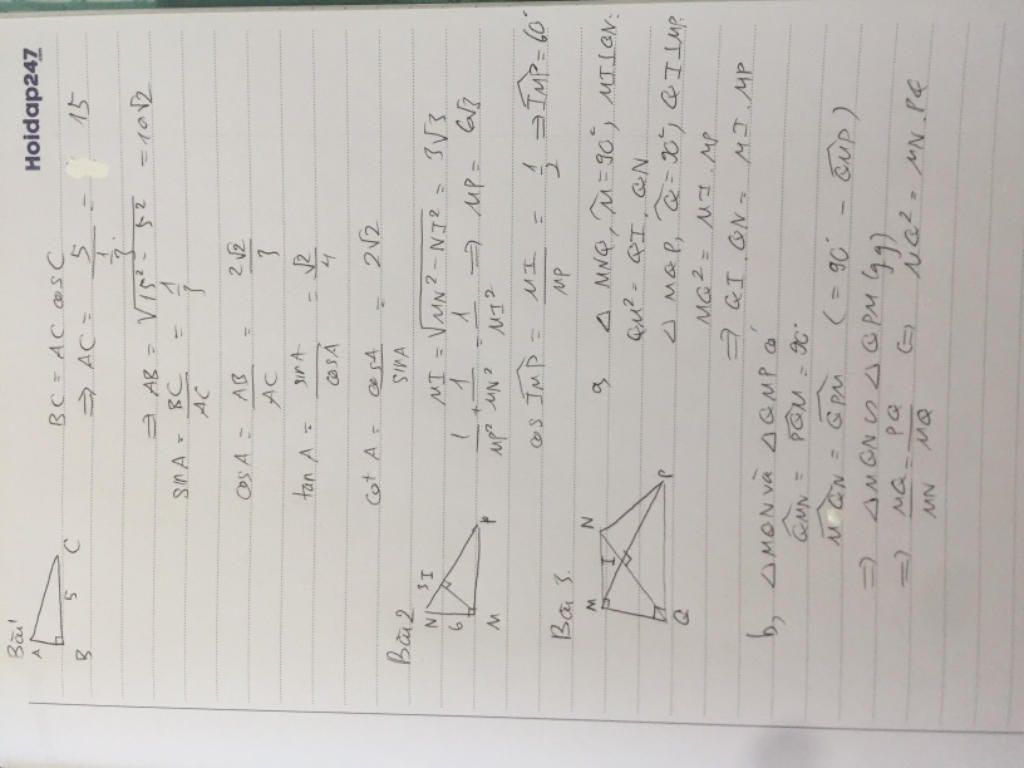 Hoidap247
Bài 1
A
B
5
C
BC = AC cosC
⇒ AC = 5 / (1/3) = 15
⇒ AB = √(15² - 5²) = 10√2
sinA = BC/AC = 1/3
cosA = AB/AC = 2√2/3
tanA = sinA/cosA = √2/4
cot A = cosA/sinA = 2√2
Bài 2
N 3 I
6
M
P
MI = √(MN² - NI²) = 3√3
1/MP² + 1/MN² = 1/MI² ⇒ MP = 6√3
cos IMP = MI/MP = 1/2 ⇒ IMP = 60°
Bài 3.
M
N
I
Q
P
a, Δ MNQ, M = 90°, MI⊥QN:
QM² = QI . QN
Δ MQP, Q = 90°, QI⊥MP:
MQ² = MI . MP
⇒ QI . QN = MI . MP
b, ΔMQN và ΔQMP có
QMN = PQM = 90°
MQN = QPM (= 90° - QMP)
⇒ ΔMQN ∽ ΔQPM (gg)
⇒ MQ/MN = PQ/MQ ⇔ MQ² = MN.PQ